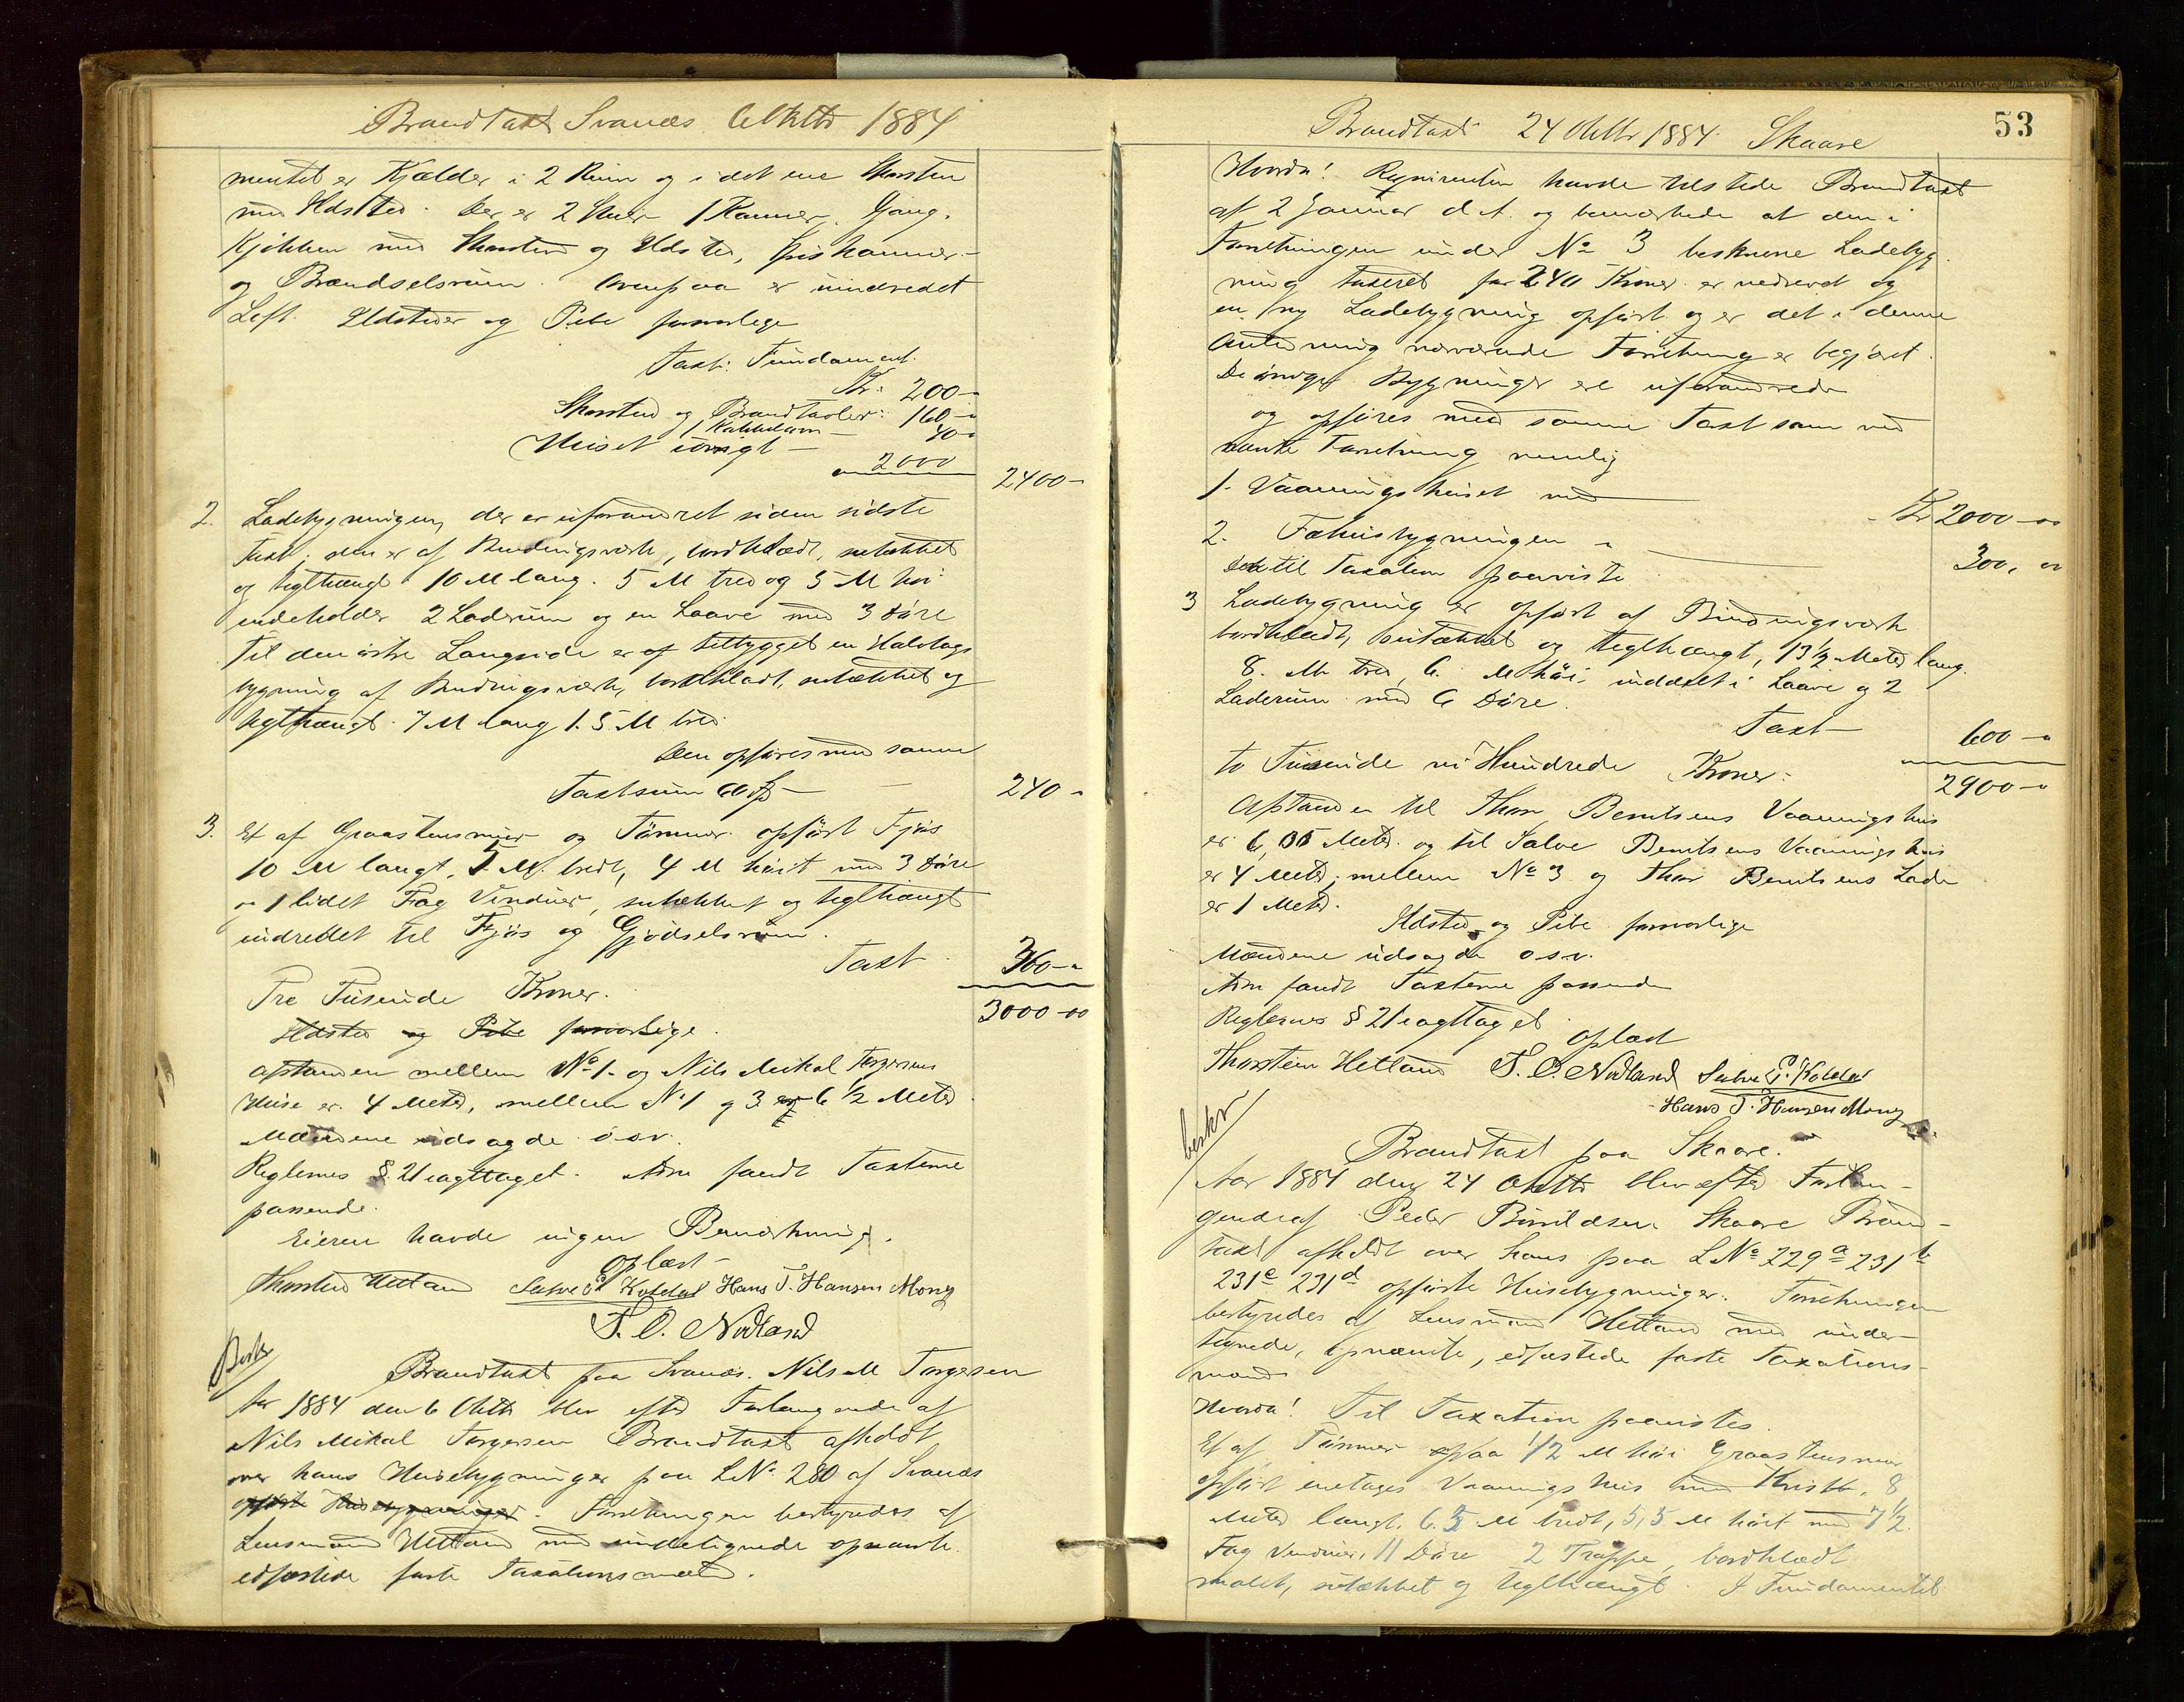 Brandtaxt Svanæs Oktbr 1884
mentet er Kjælder i 2 Rum og i det ene Skorsten
med Ildsted. Der er 2 Stuer 1 Kammer, Gang,
Kjøkken med Skorsten og Ildsted, Spiskammer
og Brændselsrum. Ovenpaa er uindredet
Loft. Ildsteder og Pibe forsvarlige
Taxt: Fundament
Kr: 200 -
Skorsten og Brandtavler: 160 -
1 Kakkelovn - 40 -
Huset iøvrigt - 2000
2400 -
2. Ladebygningen, der er uforandret siden sidste
Taxt, den er af Bindingsværk, bordklædt, sutækket
og teglhængt 10 M lang. 5 M bred og 5 M høi
indeholder 2 Laderum og en Laave med 3 Døre
Til den østre Langside er af tilbygget en Halvtags
bygning af Bindingsværk, bordklædt, sutækket og
teglhængt. 7 M lang 1.5 M bred.
Den opføres med samme
Taxtsum 60 Sp - 240 -
3. Et af Graastensmur og Tømmer opført Fjøs
10 M langt, 5 M. bredt, 4 M høit med 3 Døre
- 1 lidet Fag Vinduer, sutækket og teglhængt
indredet til Fjøs og Gjødselsrum.
Taxt 360 -
Tre Tusende Kroner. 3000 - 00
Ildsted og Pibe forsvarlige.
Afstanden mellem No 1. og Nils Mikal Torgersens
Huse er. 4 Meter, mellem N 1 og 3 er 6 1/2 Meter
Mændene udsagde o.s.v.
Reglernes § 21 iagttaget. Arne fandt Taxterne
passende.
Eieren havde ingen Bemærkning.
Oplæst -
Thorsten Hetland Salve E. Kolldal Hans T. Hansen Mong
T. O. Nodland
Beskr
Brandtaxt paa Svanæs. Nils M Torgersen
Aar 1884 den 6 Oktbr blev efter Forlangende af
Nils Mikal Torgersen Brandtaxt afholdt
over hans Husebygninger paa LNo 280 af Svanæs
opførte Husebygninger. Forretningen bestyredes af
Lensmand Hetland med undetignede opnævnte
edfæstede faste Taxationsmænd.
Brandtaxt 24 Oktbr 1884. Skaare
53
Hvorda! Requirenten havde tilstede Brandtaxt
af 2 Januar d. A. og bemærkede at den i
Forretningen under No 3 beskrevne Ladebyg
ning taxeret for 240 Kroner er nedrevet og
en ny Ladebygning opført og er det i denne
Anledning nærværende Forretning er begjært.
De øvrige Bygninger ere uforandrede
og opføres med samme Taxt som ved
nævnte Forretning nemlig
1. Vaaningshuset med Kr 2000 - 00
2. Fæhusbygningen - 300, 00
Den til Taxation paaviste
3 Ladebygning er opført af Bindingsværk
bordklædt, sutækket og teglhængt, 13 1/2 Meter lang.
8. M bred, 6. M høi, inddelt i Laave og 2
Laderum med 6 Døre.
Taxt 600 -
to Tusinde ni Hundrede Kroner: 2900 -
Afstanden til Thor Berntsens Vaaningshus
er 6,05 Meter. og til Salve Berntsens Vaaningshus
er 4 Meter, mellem No 3 og Thor Berntsens Lade
er 1 Meter.
Ildsted og Pibe forsvarlige
Mændene udsagde o.s.v.
Arne fandt Taxterne passende
Reglernes § 21 iagttaget.
Oplæst
Thorstein Hetland T. O. Nodland Salve E. Kolldal
Hans T. Hansen Mong
beskr
Brandtaxt paa Skaare.
Aar 1884 den 24 Oktbr blev efter Forlan-
gende af Peder Bårildsen Skaare Brand-
taxt afholdt over hans paa LNo 229 a 231 b
231 c 231 d opførte Husebygninger. Forretningen
bestyredes af Lensmand Hetland med under-
tegnede, opnævnte, edfæstede faste Taxations-
mænd
Hvorda! Til Taxation paavistes
Et af Tømmer paa 1/2 M høi Graastensmur
opført enetages Vaaningshus med Kvist, 8
Meter langt. 6.5 M bredt, 5,5 M høit med 7 1/2
Fag Vinduer, 11 Døre 2 Trappe, bordklædt
malet, sutækket og teglhængt. I Fundamentet